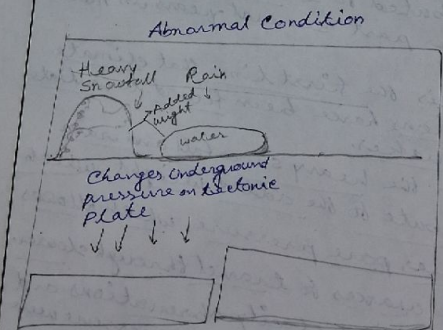 Abnormal Condition
Heavy
Snowfall
Rain
Added
weight
water
Changes Underground
pressure on tectonic
Plate